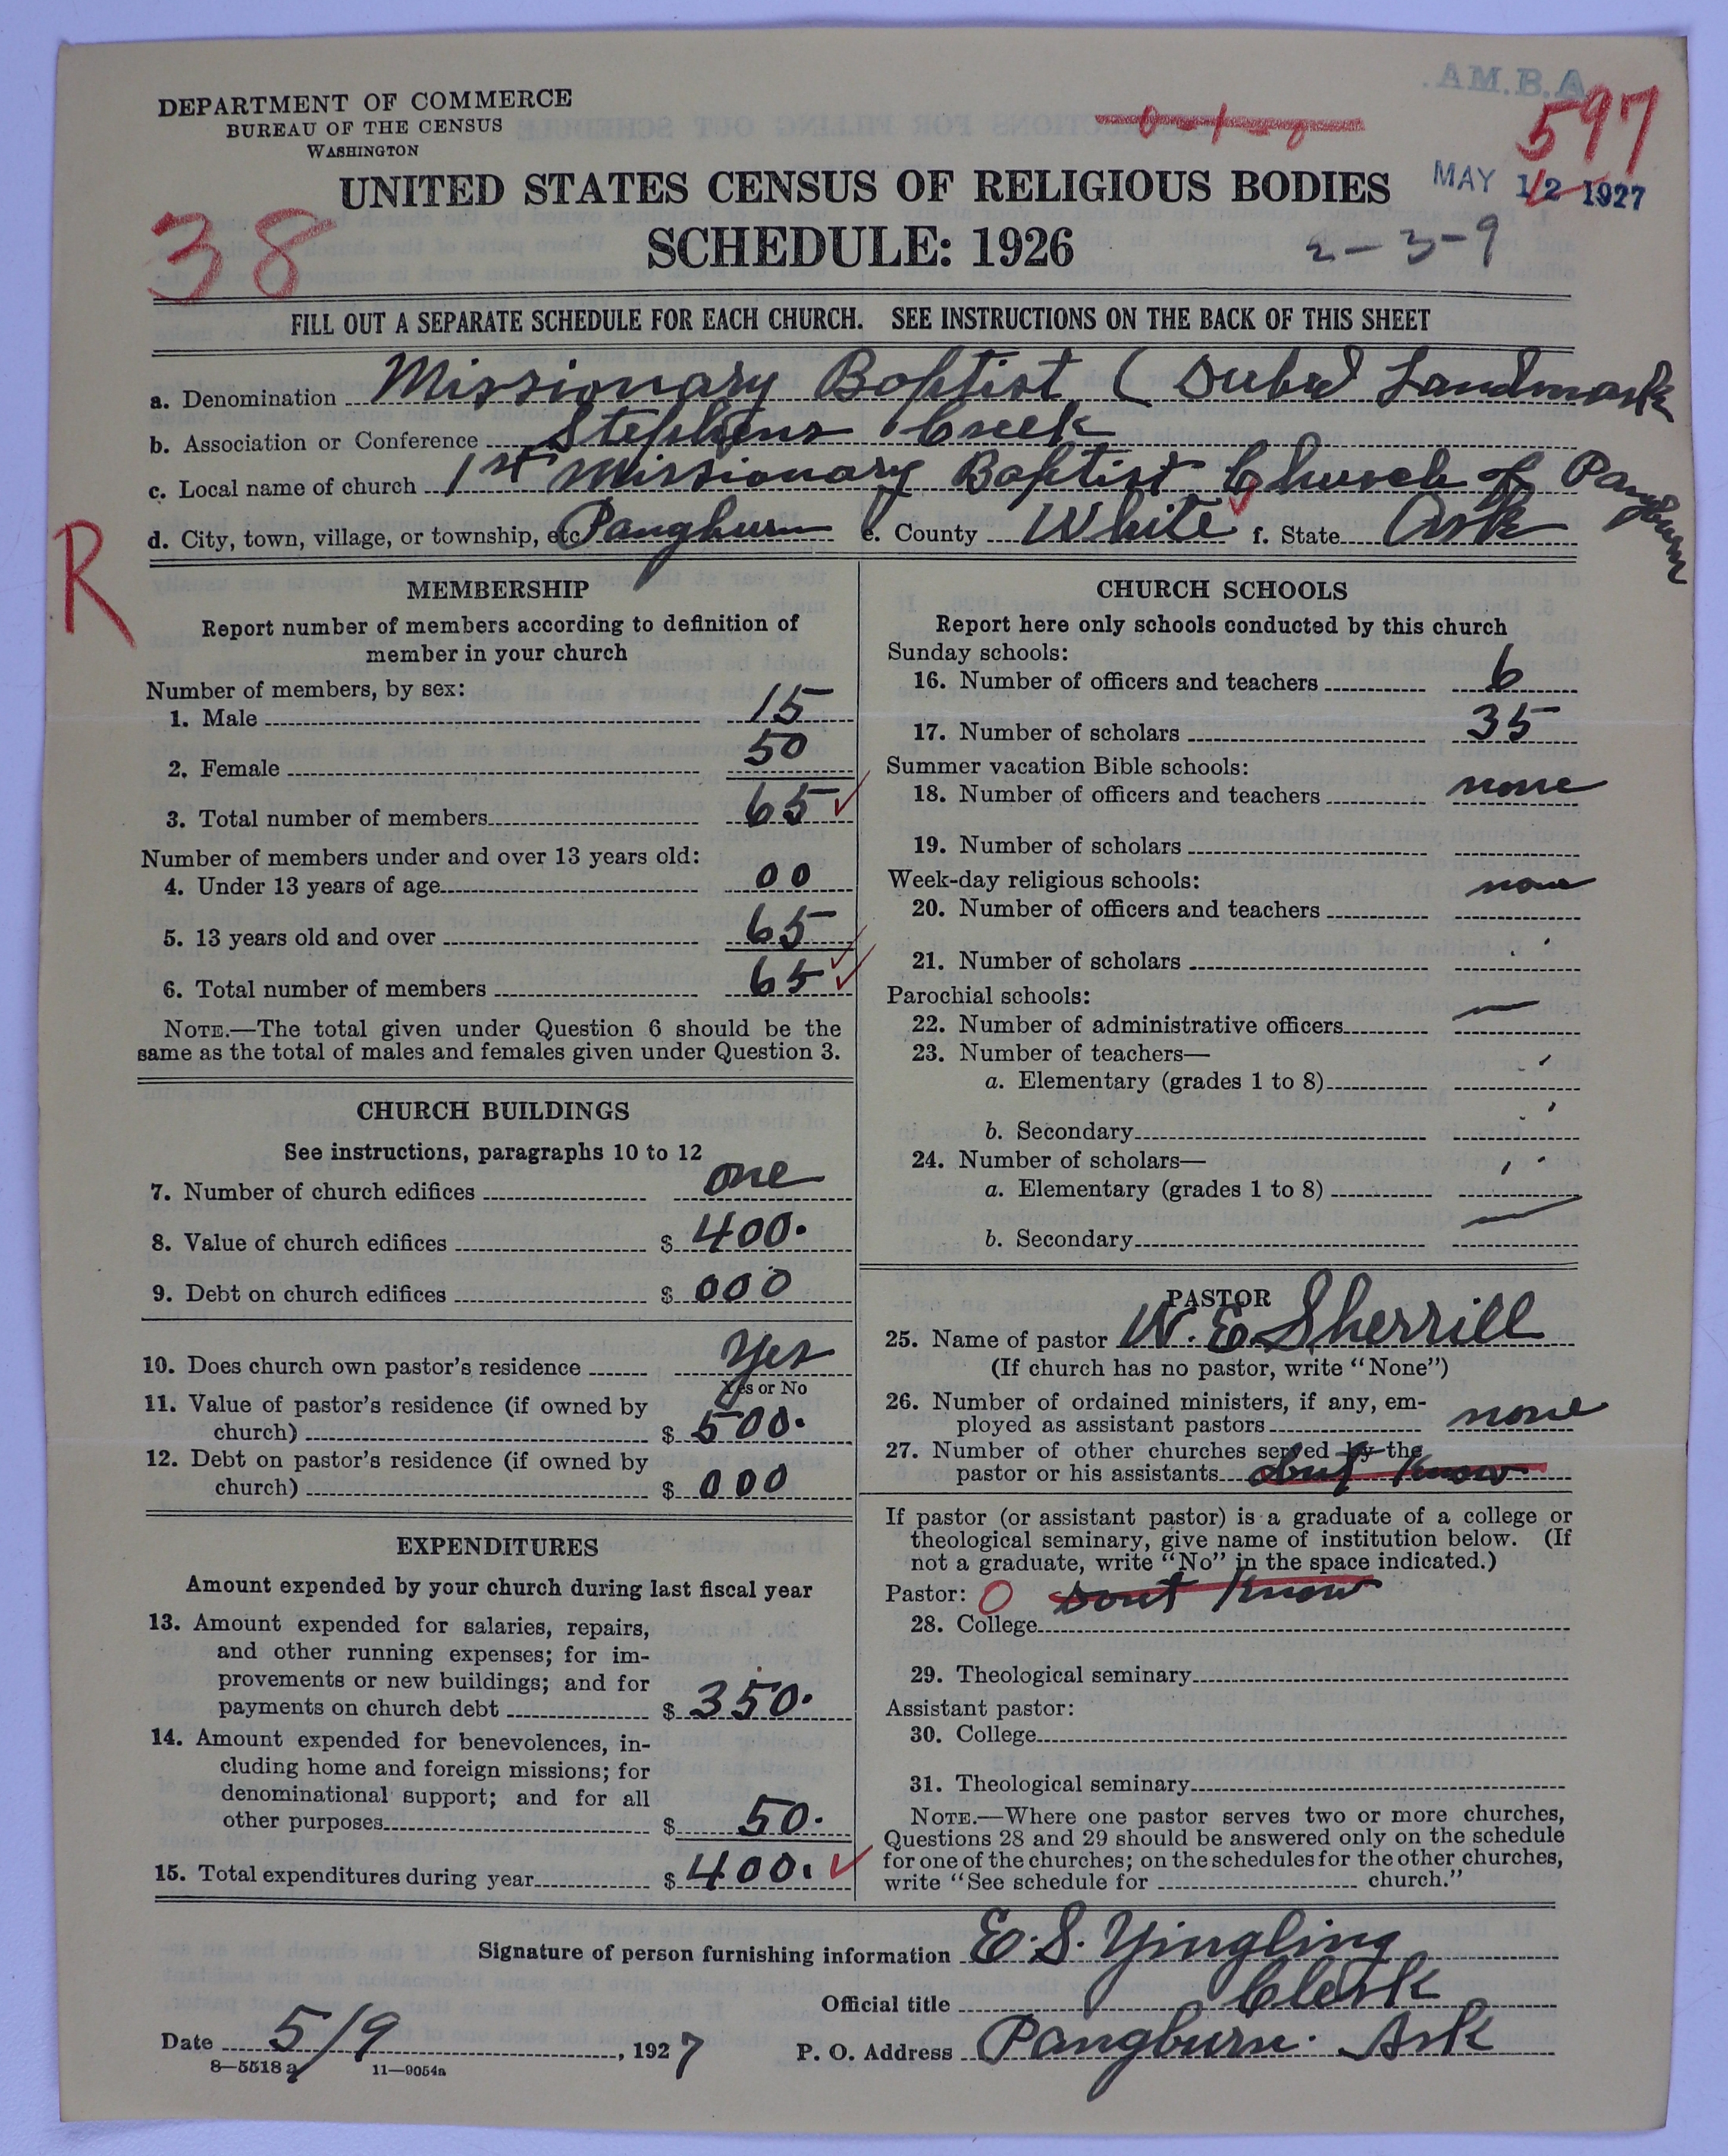 DEPARTMENT OF COMMERCE
BUREAU OF THE CENSUS
WASHINGTON
.A.M.B.A.
597
MAY 12 1927
UNITED STATES CENSUS OF RELIGIOUS BODIES
SCHEDULE: 1926
38
2-3-9
FILL OUT A SEPARATE SCHEDULE FOR EACH CHURCH. SEE INSTRUCTIONS ON THE BACK OF THIS SHEET
a. Denomination Missionary Baptist ( Landmark
b. Association or Conference Stephens Creek
c. Local name of church 1st Missionary Baptist Church of Pangburn
d. City, town, village, or township, etc. Pangburn e. County White f. State Ark
R
MEMBERSHIP
Report number of members according to definition of
member in your church
Number of members, by sex:
1. Male 15
2. Female 50
3. Total number of members 65
Number of members under and over 13 years old:
4. Under 13 years of age 00
5. 13 years old and over 65
6. Total number of members 65
NOTE.—The total given under Question 6 should be the
same as the total of males and females given under Question 3.
CHURCH BUILDINGS
See instructions, paragraphs 10 to 12
7. Number of church edifices one
8. Value of church edifices $ 400.
9. Debt on church edifices $ 000
10. Does church own pastor's residence Yes
Yes or No
11. Value of pastor's residence (if owned by
church) $ 500.
12. Debt on pastor's residence (if owned by
church) $ 000
EXPENDITURES
Amount expended by your church during last fiscal year
13. Amount expended for salaries, repairs,
and other running expenses; for im-
provements or new buildings; and for
payments on church debt $ 350.
14. Amount expended for benevolences, in-
cluding home and foreign missions; for
denominational support; and for all
other purposes $ 50.
15. Total expenditures during year $ 400.
CHURCH SCHOOLS
Report here only schools conducted by this church
Sunday schools:
16. Number of officers and teachers 6
17. Number of scholars 35
Summer vacation Bible schools:
18. Number of officers and teachers none
19. Number of scholars
Week-day religious schools:
20. Number of officers and teachers none
21. Number of scholars
Parochial schools:
22. Number of administrative officers
23. Number of teachers—
a. Elementary (grades 1 to 8)
b. Secondary
24. Number of scholars—
a. Elementary (grades 1 to 8)
b. Secondary
PASTOR
25. Name of pastor W. E. Sherrill
(If church has no pastor, write "None")
26. Number of ordained ministers, if any, em-
ployed as assistant pastors none
27. Number of other churches served by the
pastor or his assistants dont know
If pastor (or assistant pastor) is a graduate of a college or
theological seminary, give name of institution below. (If
not a graduate, write "No" in the space indicated.)
Pastor: O dont know
28. College
29. Theological seminary
Assistant pastor:
30. College
31. Theological seminary
NOTE.—Where one pastor serves two or more churches,
Questions 28 and 29 should be answered only on the schedule
for one of the churches; on the schedules for the other churches,
write "See schedule for church."
Signature of person furnishing information E. S. Yingling
Official title Clerk
Date 5/9, 1927 P. O. Address Pangburn. Ark
8—5518a 11—9054a